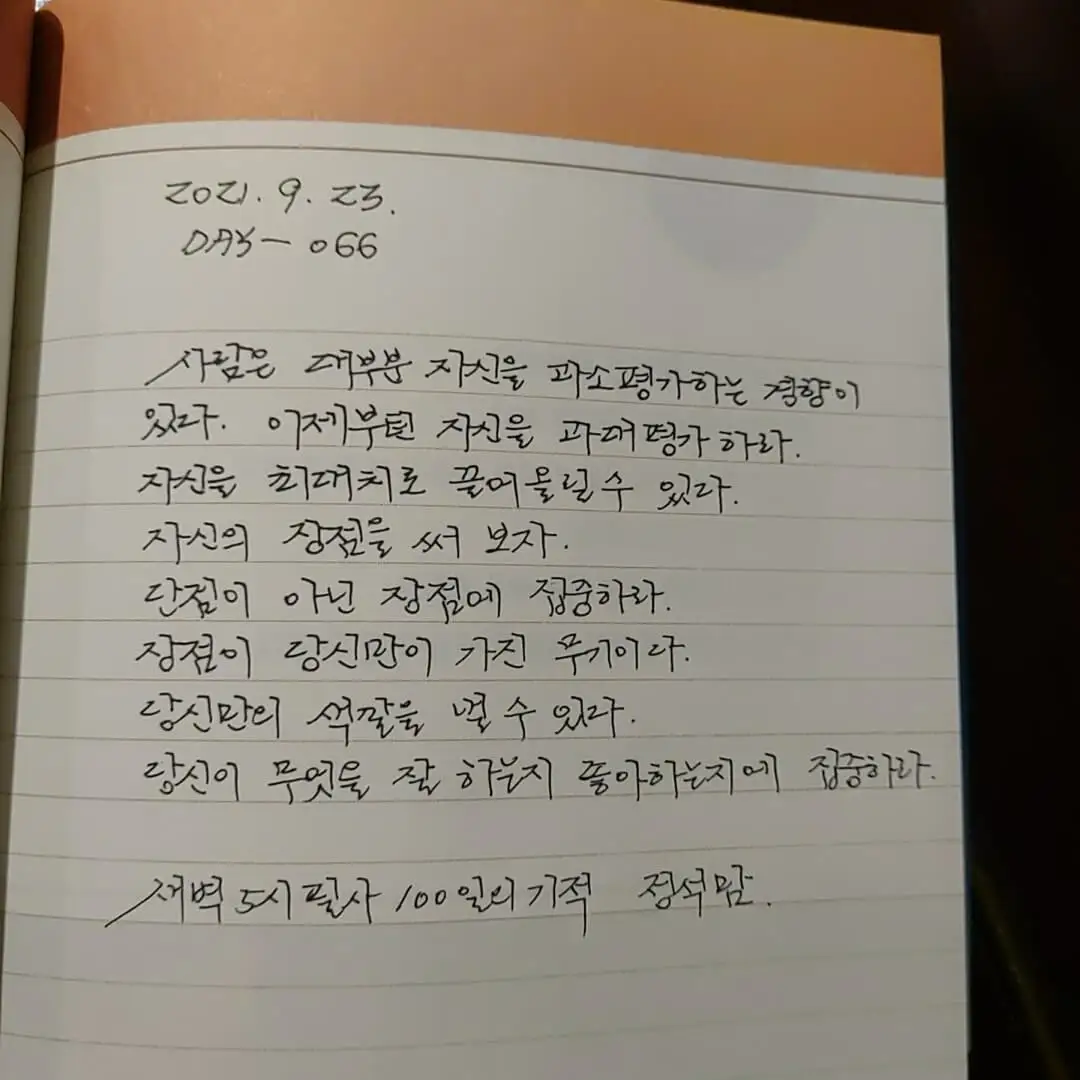 2021. 9. 23.
DAY - 066
사람은 대부분 자신을 과소평가하는 경향이
있다. 이제부턴 자신을 과대평가하라.
자신을 최대치로 끌어올릴수 있다.
자신의 장점을 써 보자.
단점이 아닌 장점에 집중하라.
장점이 당신만이 가진 무기이다.
당신만의 색깔을 낼 수 있다.
당신이 무엇을 잘 하는지 좋아하는지에 집중하라.
새벽 5시 필사 100일의 기적 정석맘.